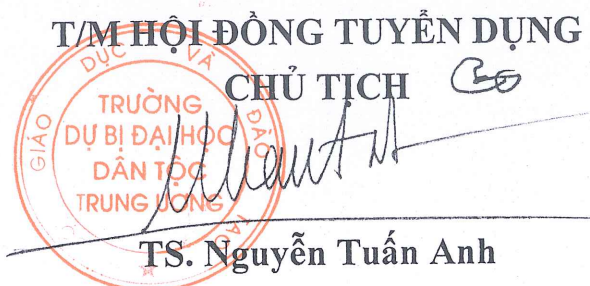 T/M HỘI ĐỒNG TUYỂN DỤNG
CHỦ TỊCH
GIÁO DỤC VÀ ĐÀO TẠO
TRƯỜNG
DỰ BỊ ĐẠI HỌC
DÂN TỘC
TRUNG ƯƠNG
TS. Nguyễn Tuấn Anh